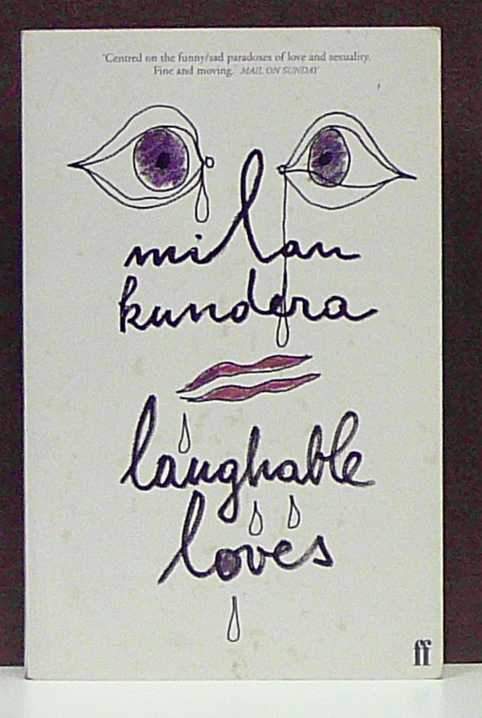 'Centred on the funny/sad paradoxes of love and sexuality.
Fine and moving.' MAIL ON SUNDAY
milan
kundera
laughable
loves
ff